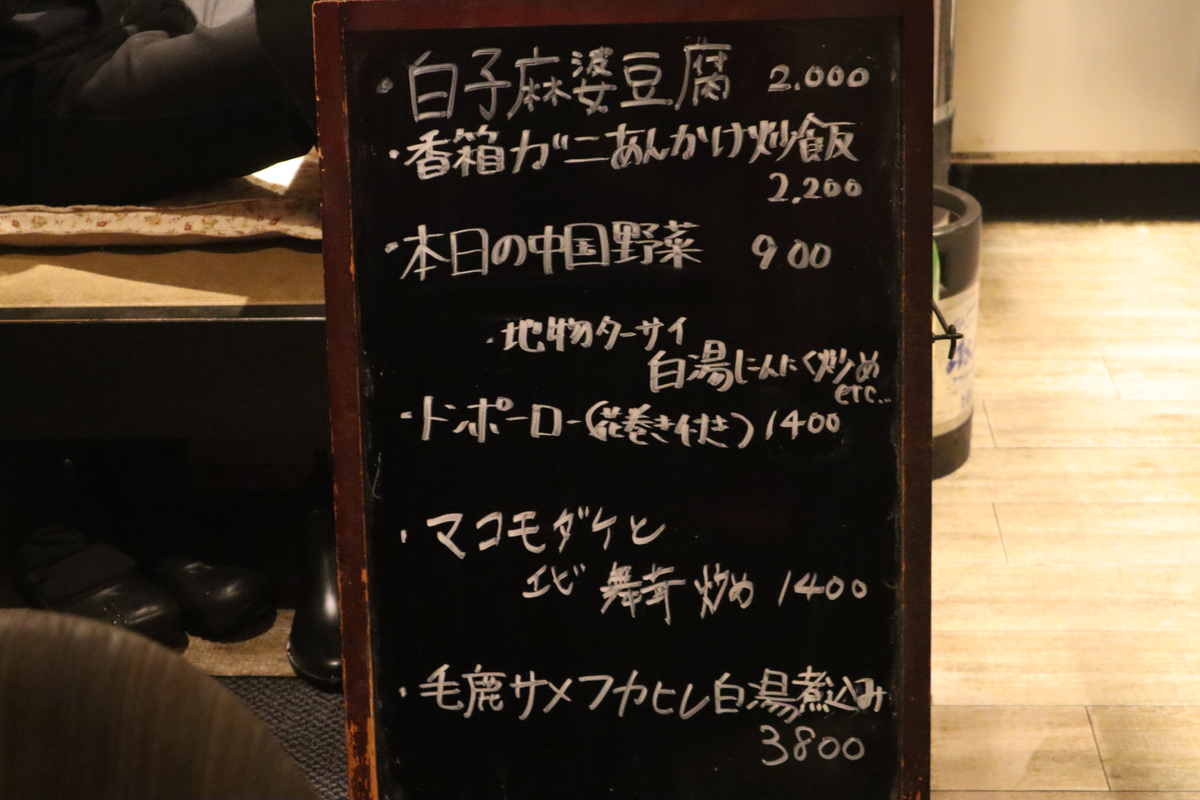 ・白子麻婆豆腐 2.000
・香箱ガニあんかけ炒飯
2.200
・本日の中国野菜 900
・地物ターサイ
白湯にんにく炒め
etc...
・トンポーロー(花巻き付き) 1400
・マコモダケと
エビ 舞茸 炒め 1400
・毛鹿サメフカヒレ白湯煮込み
3800